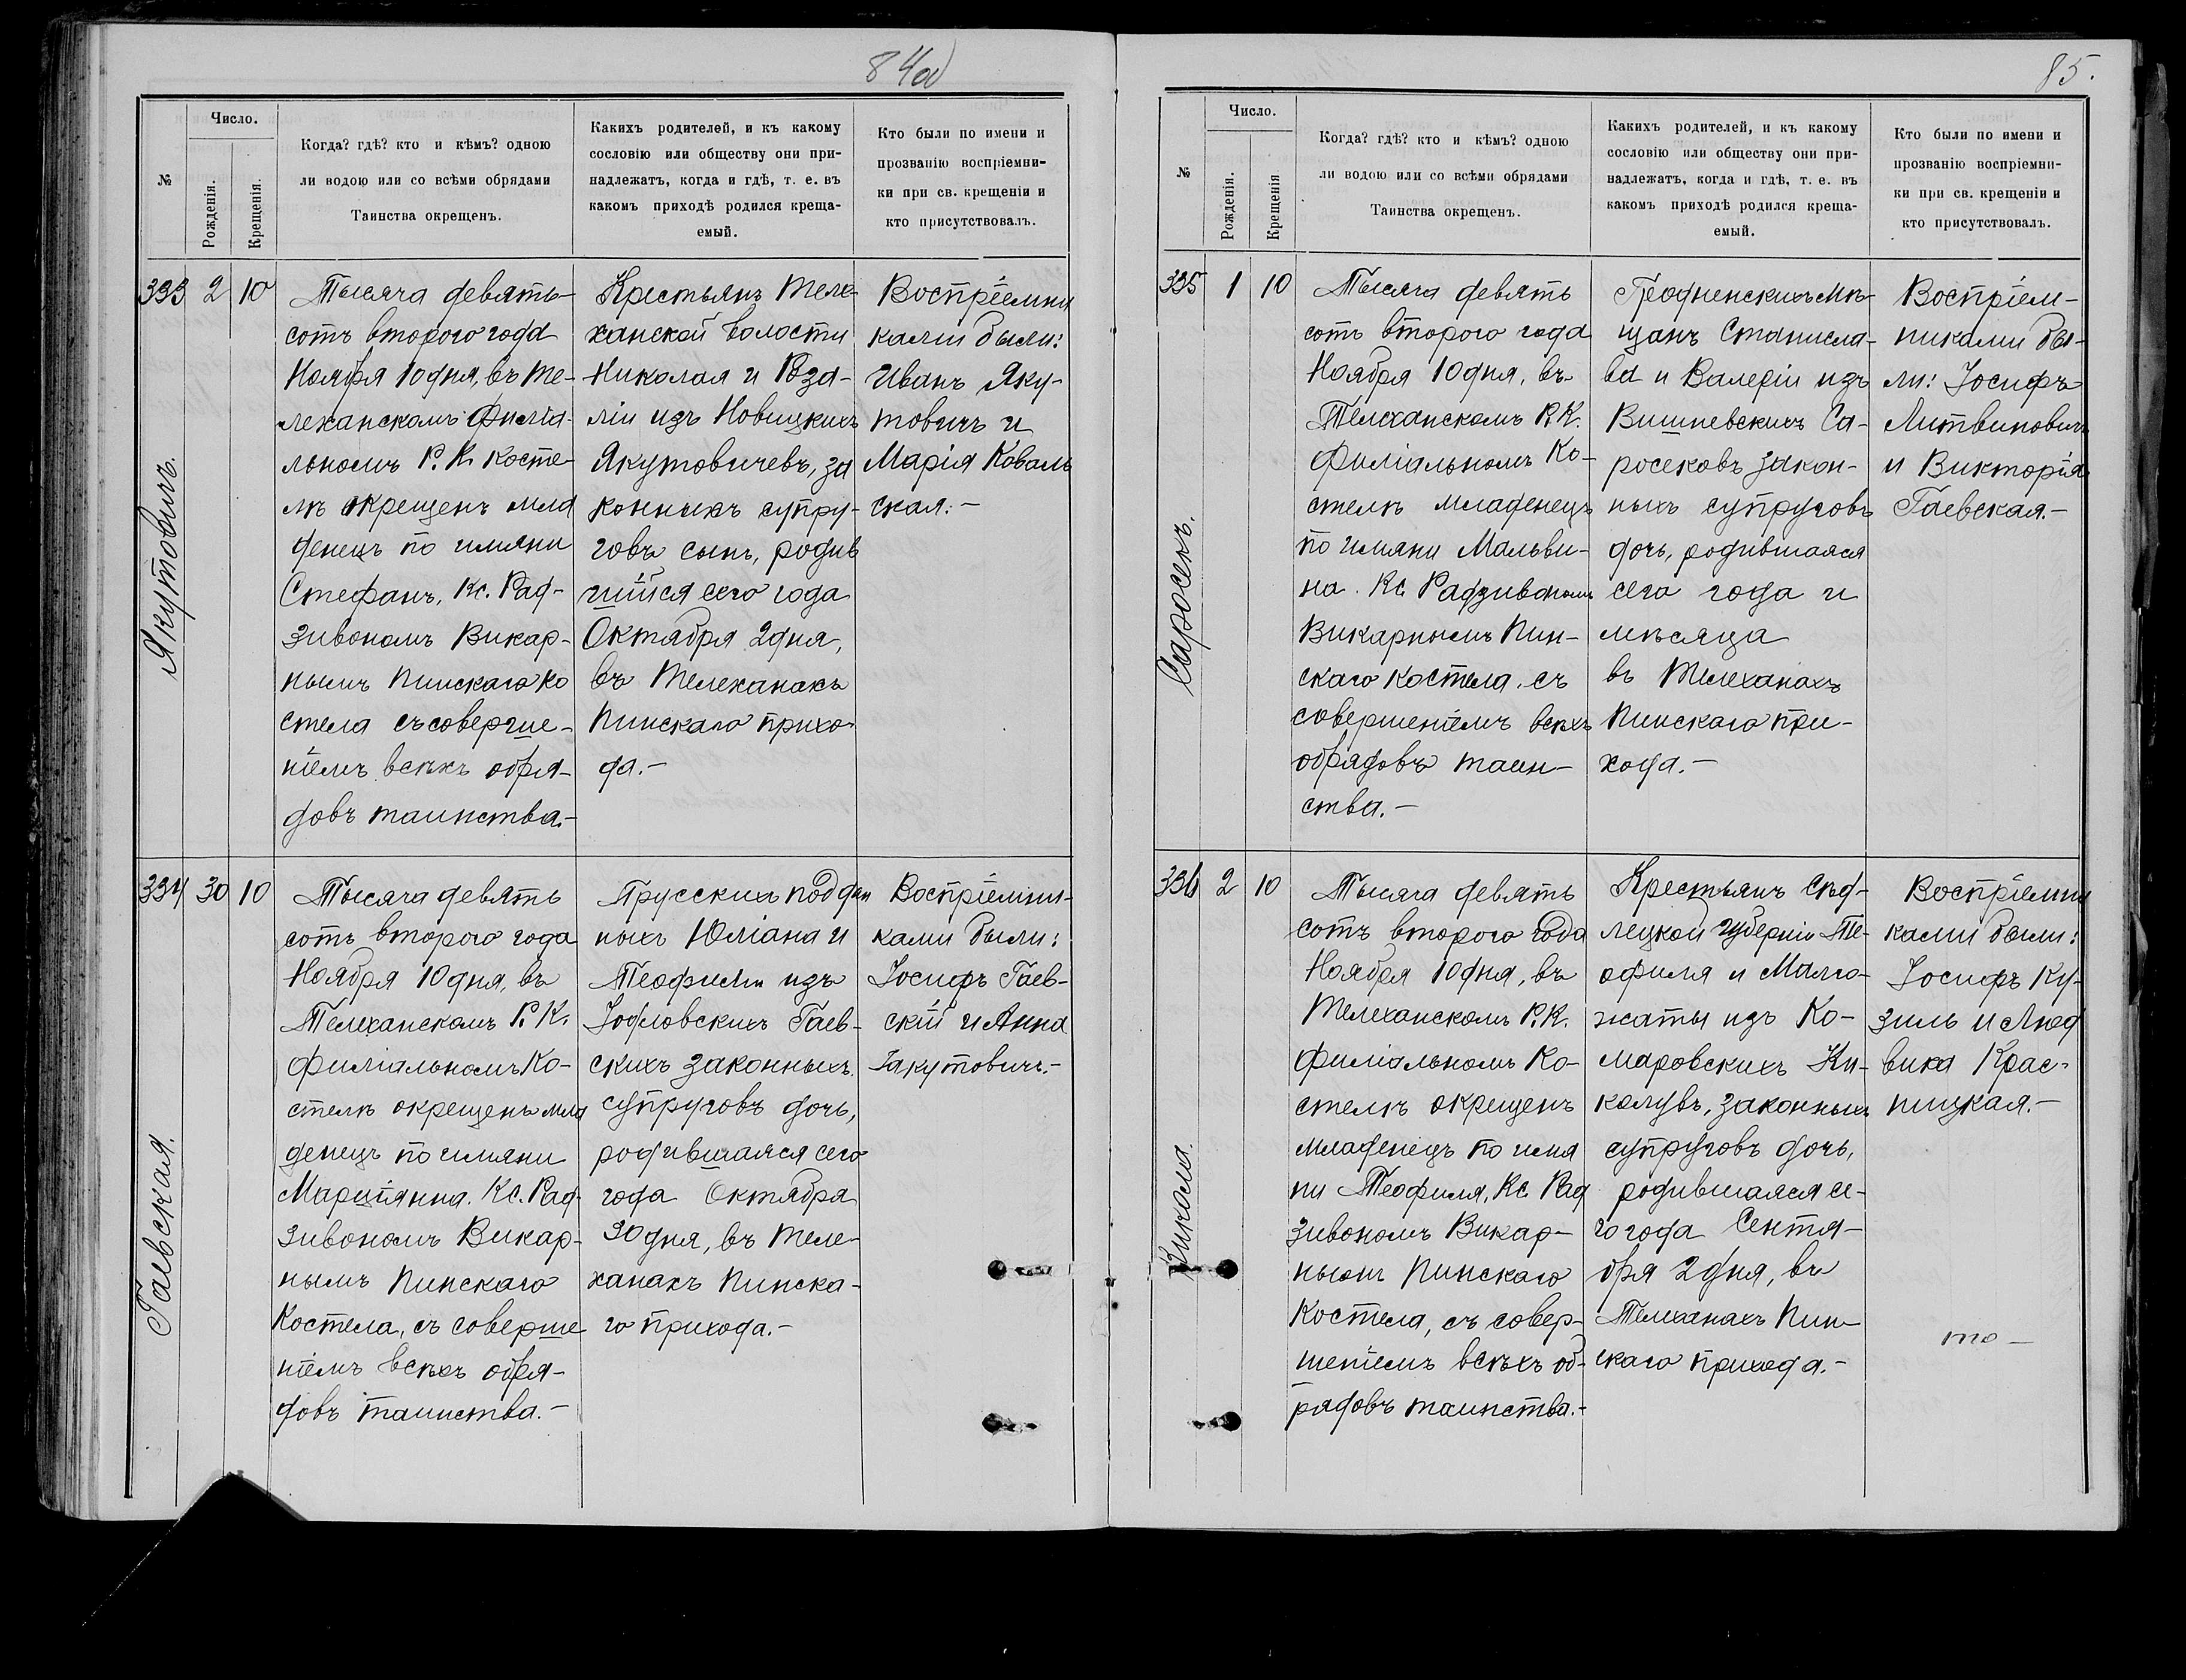 84об
№
Число.
Рожденія.
Крещенія.
Когда? гдѣ? кто и кѣмъ? одною
ли водою или со всѣми обрядами
Таинства окрещенъ.
Какихъ родителей, и къ какому
сословію или обществу они при-
надлежатъ, когда и гдѣ, т. е. въ
какомъ приходѣ родился креща-
емый.
Кто были по имени и
прозванію воспріемни-
ки при св. крещеніи и
кто присутствовалъ.
333 2 10
Якутовичъ.
Тысяча девять-
сотъ второго года
Ноября 10 дня, въ Те-
леханскомъ филіа-
льномъ Р. К. косте-
лѣ окрещенъ мла
денецъ по имяни
Стефанъ, Кс. Рад-
зивономъ Викар-
нымъ Пинскаго ко
стела съ соверше-
ніемъ всѣхъ обря-
довъ таинства.-
Крестьянъ Теле-
ханской волости
Николая и Роза-
ліи изъ Новицкихъ
Якутовичевъ, за
конныхъ супру-
говъ сынъ, родив
шійся сего года
Октября 2 дня,
въ Телеханахъ
Пинскаго прихо-
да.-
Воспріемни
ками были:
Иванъ Яку-
товичъ и
Марія Коваль
ская.-
334 30 10
Гаевская.
Тысяча девять
сотъ второго года
Ноября 10 дня, въ
Телеханскомъ Р. К.
филіальномъ Ко-
стелѣ окрещенъ мла
денецъ по имяни
Маріянна. Кс. Рад-
зивономъ Викар-
нымъ Пинскаго
Костела, съ соверше
ніемъ всѣхъ обря-
довъ таинства.-
Прусскихъ поддан
ныхъ Юліана и
Теофили изъ
Іодловскихъ Гаев-
скихъ законныхъ
супруговъ дочь,
родившаяся сего
года Октября
30 дня, въ Теле-
ханахъ Пинска-
го прихода.-
Воспріемни-
ками были:
Іосифъ Гаев-
скій и Анна
Якутовичъ.-
85.
№
Число.
Рожденія.
Крещенія
Когда? гдѣ? кто и кѣмъ? одною
ли водою или со всѣми обрядами
Таинства окрещенъ.
Какихъ родителей, и къ какому
сословію или обществу они при-
надлежатъ, когда и гдѣ, т. е. въ
какомъ приходѣ родился креща-
емый.
Кто были по имени и
прозванію воспріемни-
ки при св. крещеніи и
кто присутствовалъ.
335 1 10
Саросекъ.
Тысяча девять
сотъ второго года
Ноября 10 дня, въ
Телеханскомъ Р. К.
филіальномъ Ко-
стелѣ младенецъ
по имяни Мальви-
на. Кс. Радзивономъ
Викарнымъ Пин-
скаго костела, съ
совершеніемъ всѣхъ
обрядовъ таин-
ства.-
Гродненскихъ Мѣ-
щанъ Станисла-
ва и Валеріи изъ
Вишневскихъ Са-
росековъ закон-
ныхъ супруговъ
дочь, родившаяся
сего года и
мѣсяца
въ Телеханахъ
Пинскаго при-
хода.-
Воспріем-
никами бы-
ли: Іосифъ
Литвиновичъ
и Викторія
Гаевская.-
336 2 10
Кикола.
Тысяча девять
сотъ второго года
Ноября 10 дня, въ
Телеханскомъ Р. К.
филіальномъ Ко-
стелѣ окрещенъ
младенецъ по имя
ни Теофиля, Кс. Рад
зивономъ Викар-
нымъ Пинскаго
Костела, съ совер-
шеніемъ всѣхъ об-
рядовъ таинства.-
Крестьянъ Сѣд-
лецкой губерніи Те-
офиля и Малго-
жаты изъ Ко-
маровскихъ Ки-
колувъ, законныхъ
супруговъ дочь,
родившаяся се-
го года Сентя-
бря 2 дня, въ
Телеханахъ Пин-
скаго прихода.-
Воспріемни
ками были:
Іосифъ Ку-
зиль и Люд
вика Крас-
ницкая.-